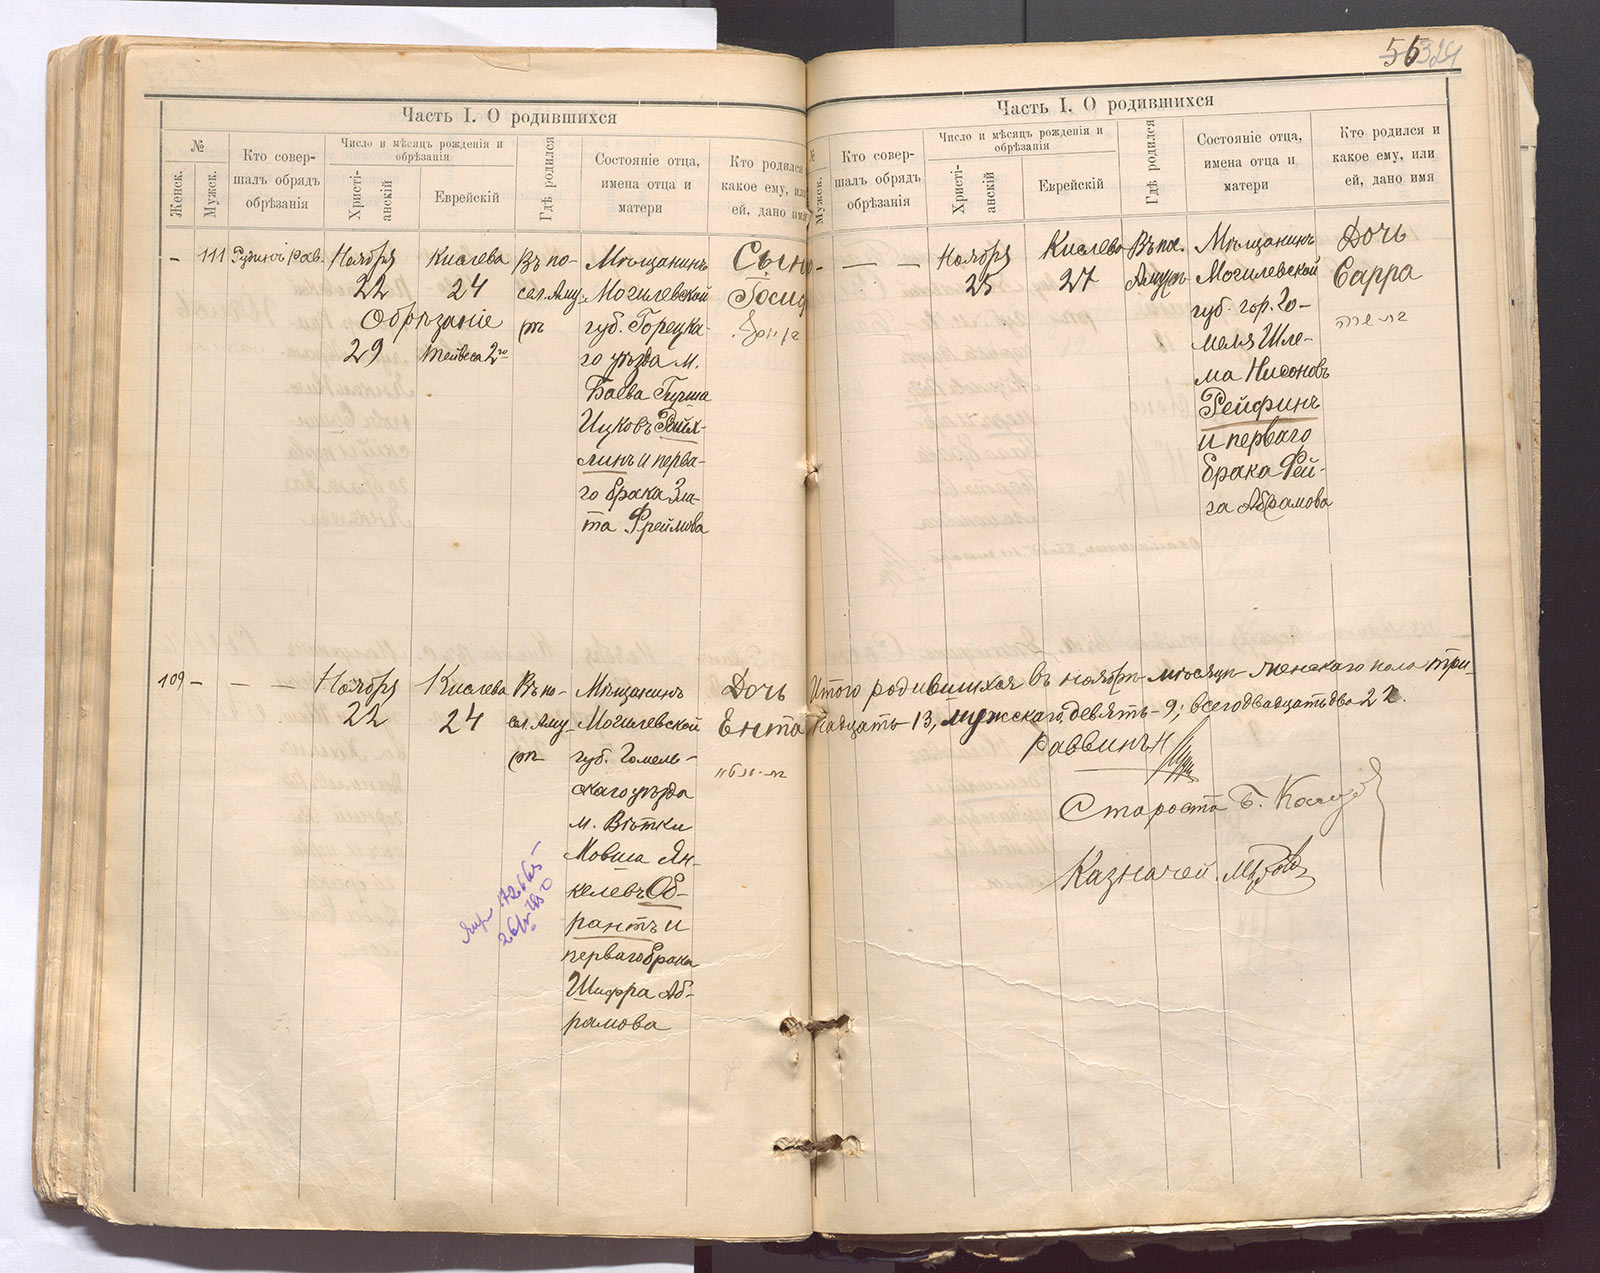 56
324
Часть I. О родившихся
№
Женск.
Мужск.
Кто совер-
шалъ обрядъ
обрѣзанія
Число и мѣсяцъ рожденія и
обрѣзанія
Христі-
анскій
Еврейскій
Гдѣ родился
Состояніе отца,
имена отца и
матери
Кто родился
какое ему, или
ей, дано имя
–
111
Рав.
Ноября
22
Обрѣзаніе
29
Кислева
24
Тейвеса 2го
Въ по-
сел. Аму-
рѣ
Мѣщанинъ
Могилевской
губ. Горецка-
го уѣзда м.
Баева Гирша
Ицковъ Рейх-
линъ и перва-
го брака Зла-
та Фреймова
Сынъ
109
–
– –
Ноября
22
Кислева
24
Въ по-
сел. Аму-
рѣ
Мѣщанинъ
Могилевской
губ. Гомель-
скаго уѣзда
м. Вѣтки
Мовша Ян-
келевъ Об-
рантъ и
перваго брака
Шифра Аб-
рамова
Дочь
Ента
Часть I. О родившихся
№
Мужск.
Кто совер-
шалъ обрядъ
обрѣзанія
Число и мѣсяцъ рожденія и
обрѣзанія
Христі-
анскій
Еврейскій
Гдѣ родился
Состояніе отца,
имена отца и
матери
Кто родился и
какое ему, или
ей, дано имя
– – –
Ноября
25
Кислева
27
Въ пос.
Амурѣ
Мѣщанинъ
Могилевской
губ. гор. Го-
меля Шле-
ма Нисоновъ
Рейфинъ
и перваго
брака Фей-
га Абрамова
Дочь
Сарра
שרה
Итого родившихся въ ноябрѣ мѣсяцѣ женскаго пола три-
надцать 13, мужскаго, девять – 9; всего двадцать два 22.
Раввинъ
Староста Б.
Казначей